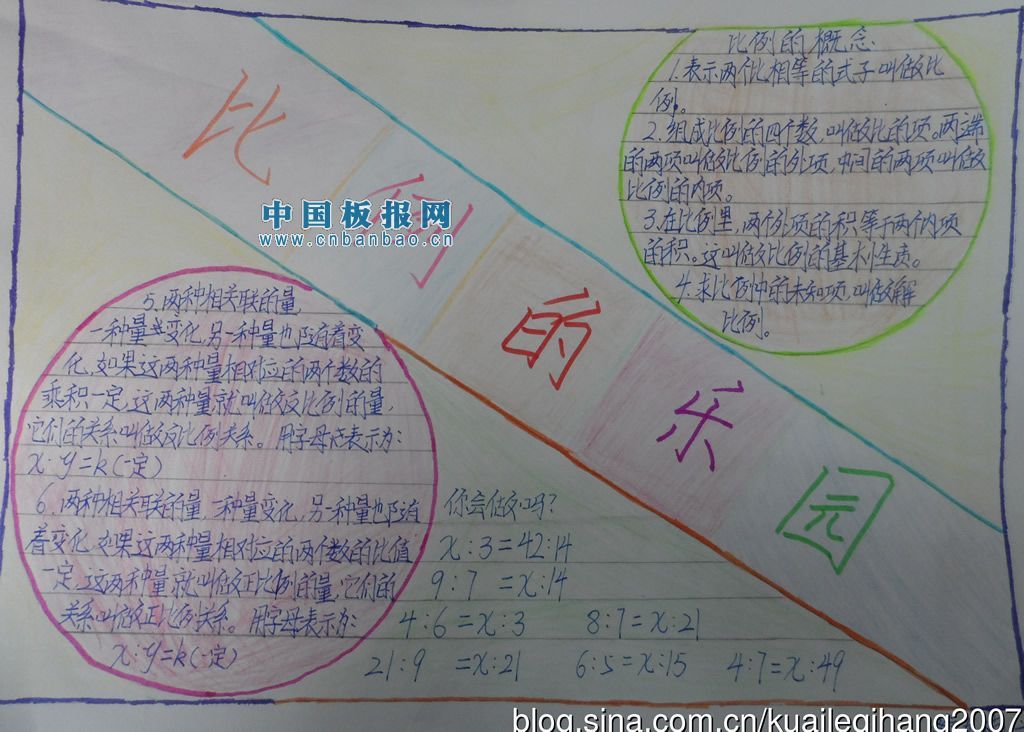 比例的乐园
中国板报网
www.cnbanbao.cn
比例的概念
1.表示两个比相等的式子叫做比
例。
2.组成比例的四个数,叫做比的项。两端
的两项叫做比例的外项,中间的两项叫做
比例的内项。
3.在比例里,两个外项的积等于两个内项
的积。这叫做比例的基本性质。
4.求比例中的未知项,叫做解
比例。
5.两种相关联的量,
一种量变化,另一种量也随着变
化,如果这两种量相对应的两个数的
乘积一定,这两种量就叫做反比例的量,
它们的关系叫做反比例关系。用字母表示为:
x:y=k(一定)
6.两种相关联的量,一种量变化,另一种量也随
着变化,如果这两种量相对应的两个数的比值
一定,这两种量就叫做正比例的量,它们的
关系叫做正比例关系。用字母表示为:
x:y=k(一定)
你会做吗?
x:3=42:14
9:7=x:14
4:6=x:3 8:7=x:21
21:9=x:21 6:5=x:15 4:7=x:49
blog.sina.com.cn/kuaileqihang2007